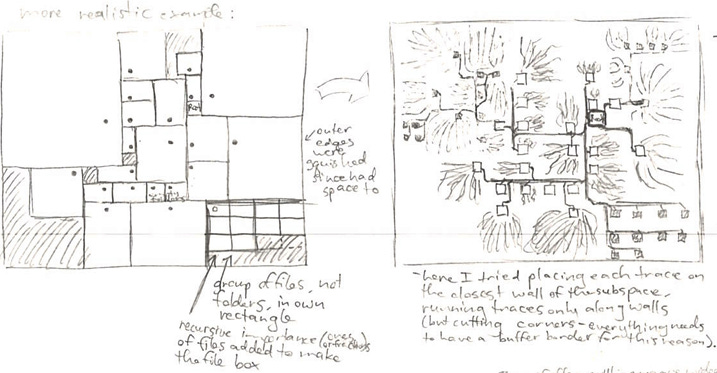 more realistic example:
outer
edges
were
squished
since had
space to
group of files, not
folders, in own
rectangle
recursive importance (over
of files added to make
the file box
-here I tried placing each trace on
the closest wall of the subspace,
running traces only along walls
(but cutting corners-everything needs
to have a buffer border for this reason).